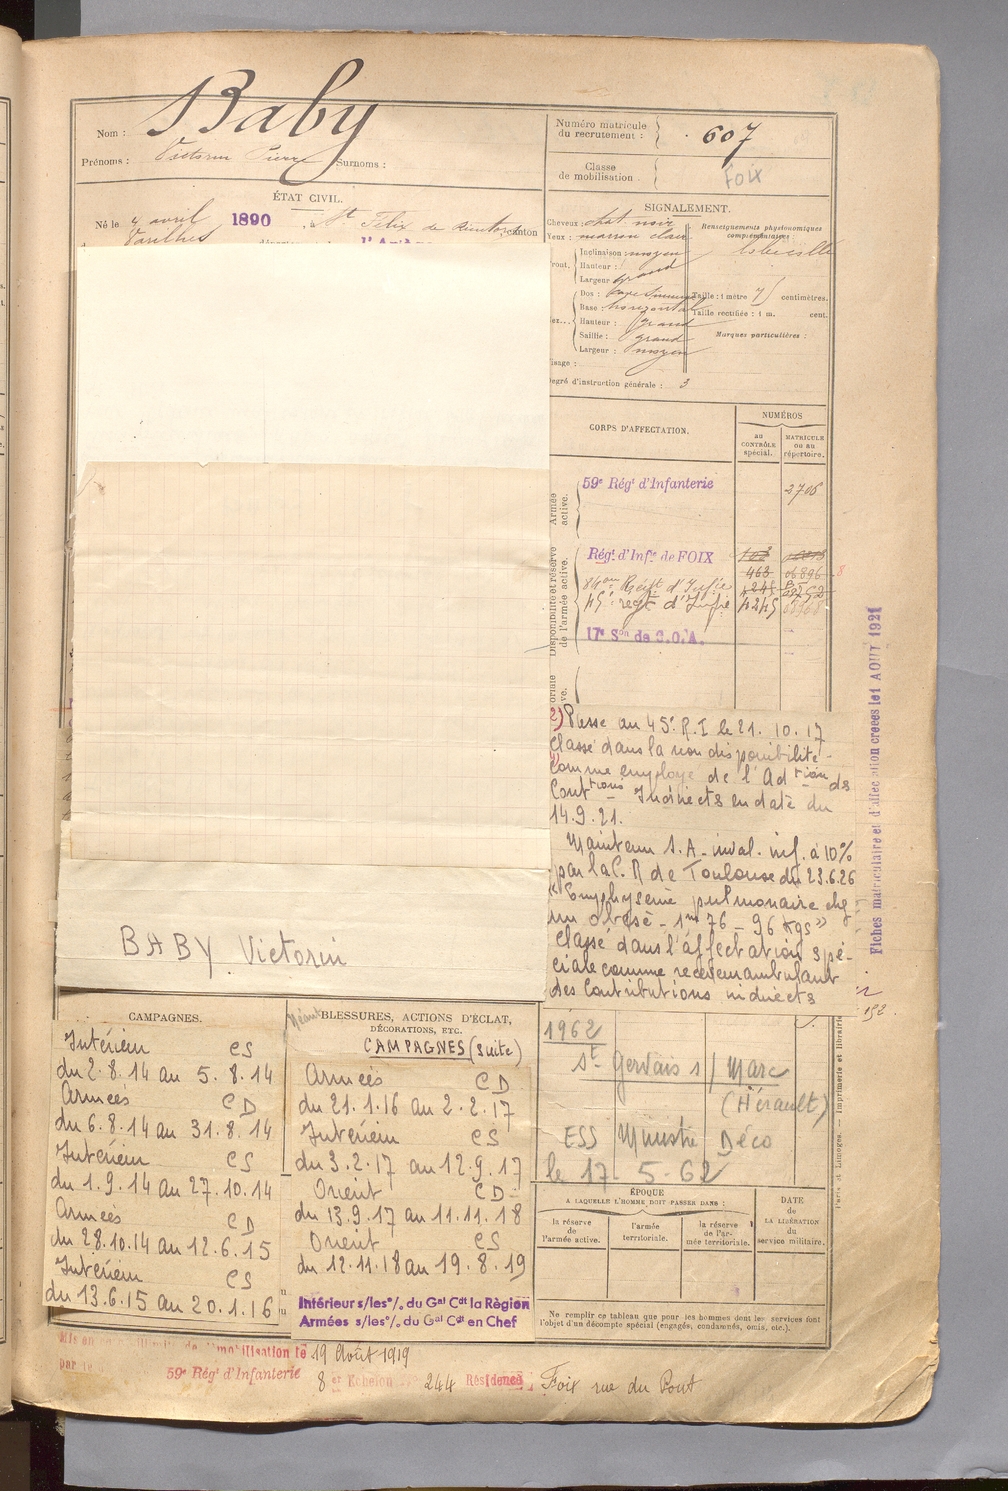 Nom : Baby
Prénoms : Victorin Pierre Surnoms :
ÉTAT CIVIL.
Né le 4 avril 1890 à St Félix de Rieutord, canton
Varilhes
Numéro matricule
du recrutement : 607
Classe
de mobilisation.
Foix
SIGNALEMENT.
Cheveux : chat noir
Yeux : marron clair
Renseignements physionomiques
complémentaires :
Inclinaison : moyen
Hauteur :
Largeur grand
Dos :
Base : horizontal
Hauteur : grand
Saillie : grand
Largeur : moyen
Taille : 1 mètre 75 centimètres.
Taille rectifiée : 1 m. cent.
Marques particulières :
Degré d'instruction générale : 3
CORPS D'AFFECTATION.
NUMÉROS
AU
CONTRÔLE
spécial.
MATRICULE
ou au
répertoire.
Armée
active.
59e Régt d'Infanterie
2706
Disponibilité et réserve
de l'armée active.
Régt d'Infie de FOIX
463 06896
84eme Régit d'Infie
45e regt d'Infie 4245
17e Son de C.O.A.
Fiches matriculaire et d'affectation créées le 1 AOUT 1921
2) Passe au 45e R.I le 21.10.17
Classé dans la non disponibilité
comme employé de l'Adtion des
Conttions Indirects en date du
14.9.21.
Maintenu S.A. inval. inf. à 10%
par la C.R de Toulouse du 23.6.26
"Emphysème pulmonaire chez
un obèse - 1m76 - 96 Kgs"
Classé dans l'affectation spé-
ciale comme receveur ambulant
des Contributions indirects
BABY Victorin
CAMPAGNES.
Intérieur CS
du 2.8.14 au 5.8.14
Armées CD
du 6.8.14 au 31.8.14
Intérieur CS
du 1.9.14 au 27.10.14
Armées CD
du 28.10.14 au 12.6.15
Intérieur CS
du 13.6.15 au 20.1.16
Néant
BLESSURES, ACTIONS D'ÉCLAT,
DÉCORATIONS, ETC.
CAMPAGNES (suite)
Armées CD
du 21.1.16 au 2.2.17
Intérieur CS
du 3.2.17 au 12.9.17
Orient CD
du 13.9.17 au 11.11.18
Orient CS
du 12.11.18 au 19.8.19
Intérieur s/les °/. du Gal Cdt la Région
Armées s/les °/. du Gal Cdt en Chef
1962
St Gervais s/ Marc
(Hérault)
ESS Ministre Déco
le 17 5-62
ÉPOQUE
A LAQUELLE L'HOMME DOIT PASSER DANS :
la réserve
de
l'armée active.
l'armée
territoriale.
la réserve
de l'ar-
mée territoriale.
DATE
de
LA LIBÉRATION
du
service militaire.
Ne remplir ce tableau que pour les hommes dont les services font
l'objet d'un décompte spécial (engagés, condamnés, omis, etc.).
Paris et Limoges. — Imprimerie et librairie
Mis en congé illimité de démobilisation le 19 Août 1919
par le 59e Régt d'Infanterie 8 Echelon 244 Résidence : Foix rue du Pont